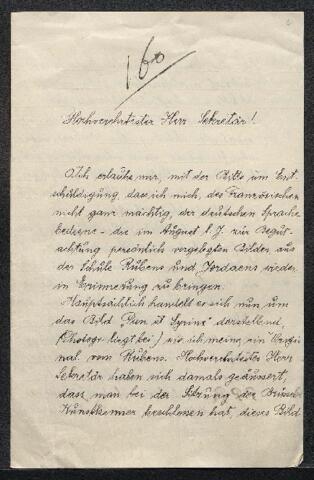 160
Hochverehrtester Herr Sekretär!
Ich erlaube mir, mit der Bitte um Ent-
schuldigung, dass ich mich, des Französischen
nicht ganz mächtig, der deutschen Sprache
bediene - die im August l. J. zur Begut-
achtung persönlich vorgelegten Bilder aus
der Schule Rubens und Jordaens wieder
in Erinnerung zu bringen.
Hauptsächlich handelt es sich nun um
das Bild "Pan u Syrinx" darstellend,
(Photogr. liegt bei) wie ich meine ein Origi-
nal von Rubens. Hochverehrtester Herr
Sekretär haben sich damals geäussert,
dass man bei der Sitzung der Brüsseler
Kunstkenner beschlossen hat, dieses Bild